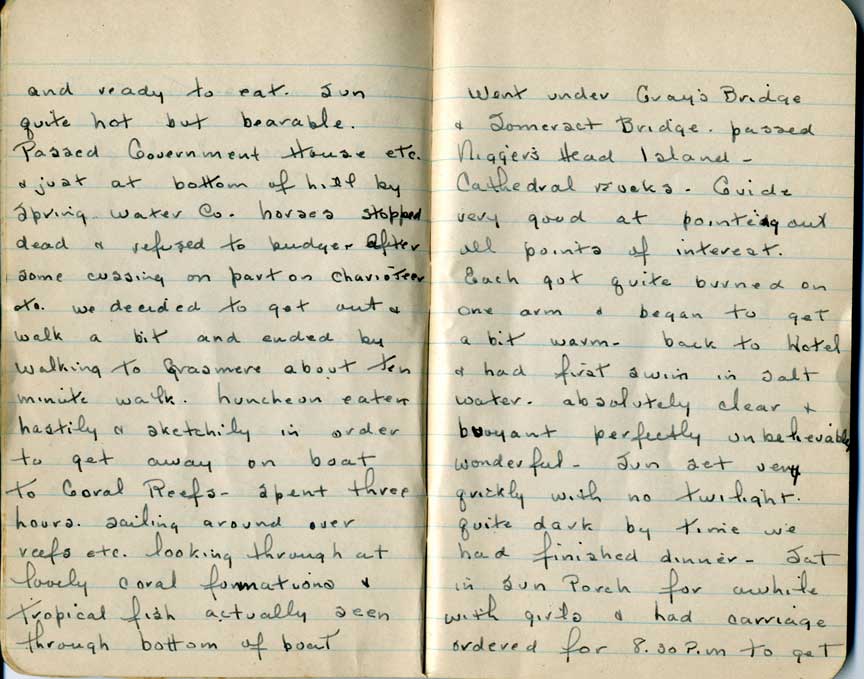 and ready to eat. Sun
quite hot but bearable.
Passed Government House etc.
& just at bottom of hill by
Spring Water Co. horses stopped
dead & refused to budge. After
some cussing on part on charioteer
etc. we decided to get out &
walk a bit and ended by
walking to Grasmere about ten
minute walk. Luncheon eaten
hastily & sketchily in order
to get away on boat
to Coral Reefs - spent three
hours. sailing around over
reefs etc. looking through at
lovely coral formations &
tropical fish actually seen
through bottom of boat
Went under Gray's Bridge
& Somerset Bridge. passed
Niggers Head Island -
Cathedral rocks. Guide
very good at pointing out
all points of interest.
Each got quite burned on
one arm & began to get
a bit warm - back to Hotel
& had first swim in salt
water. absolutely clear &
buoyant perfectly unbelievably
wonderful - Sun set very
quickly with no twilight.
quite dark by time we
had finished dinner - Sat
in Sun Porch for awhile
with girls & had carriage
ordered for 8.30 P.m to get